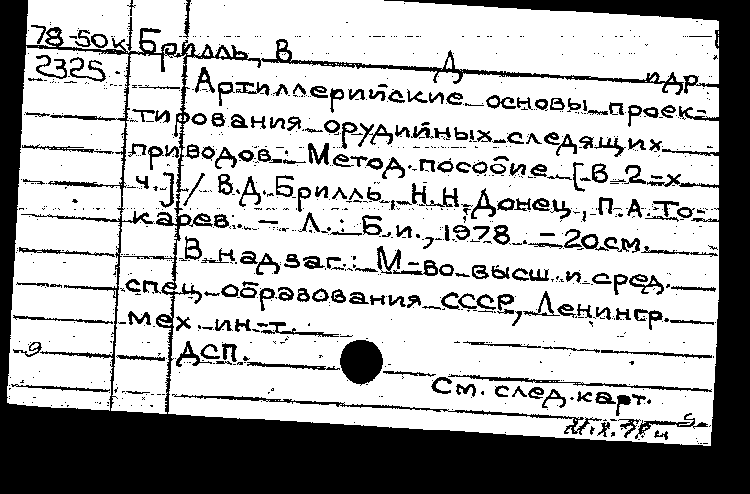 78-50к Брилль, В Д и др
2325. Артиллерийские основы проек-
тирования орудийных следящих
приводов: Метод. пособие [В 2-х
ч.] / В.Д. Брилль, Н.Н. Донец, П.А. То-
карев. - Л.: Б.и., 1978. - 20 см.
В надзаг.: М-во высш. и сред.
спец. образования СССР, Ленингр.
мех. ин-т.
9 ДСП.
См. след. карт.